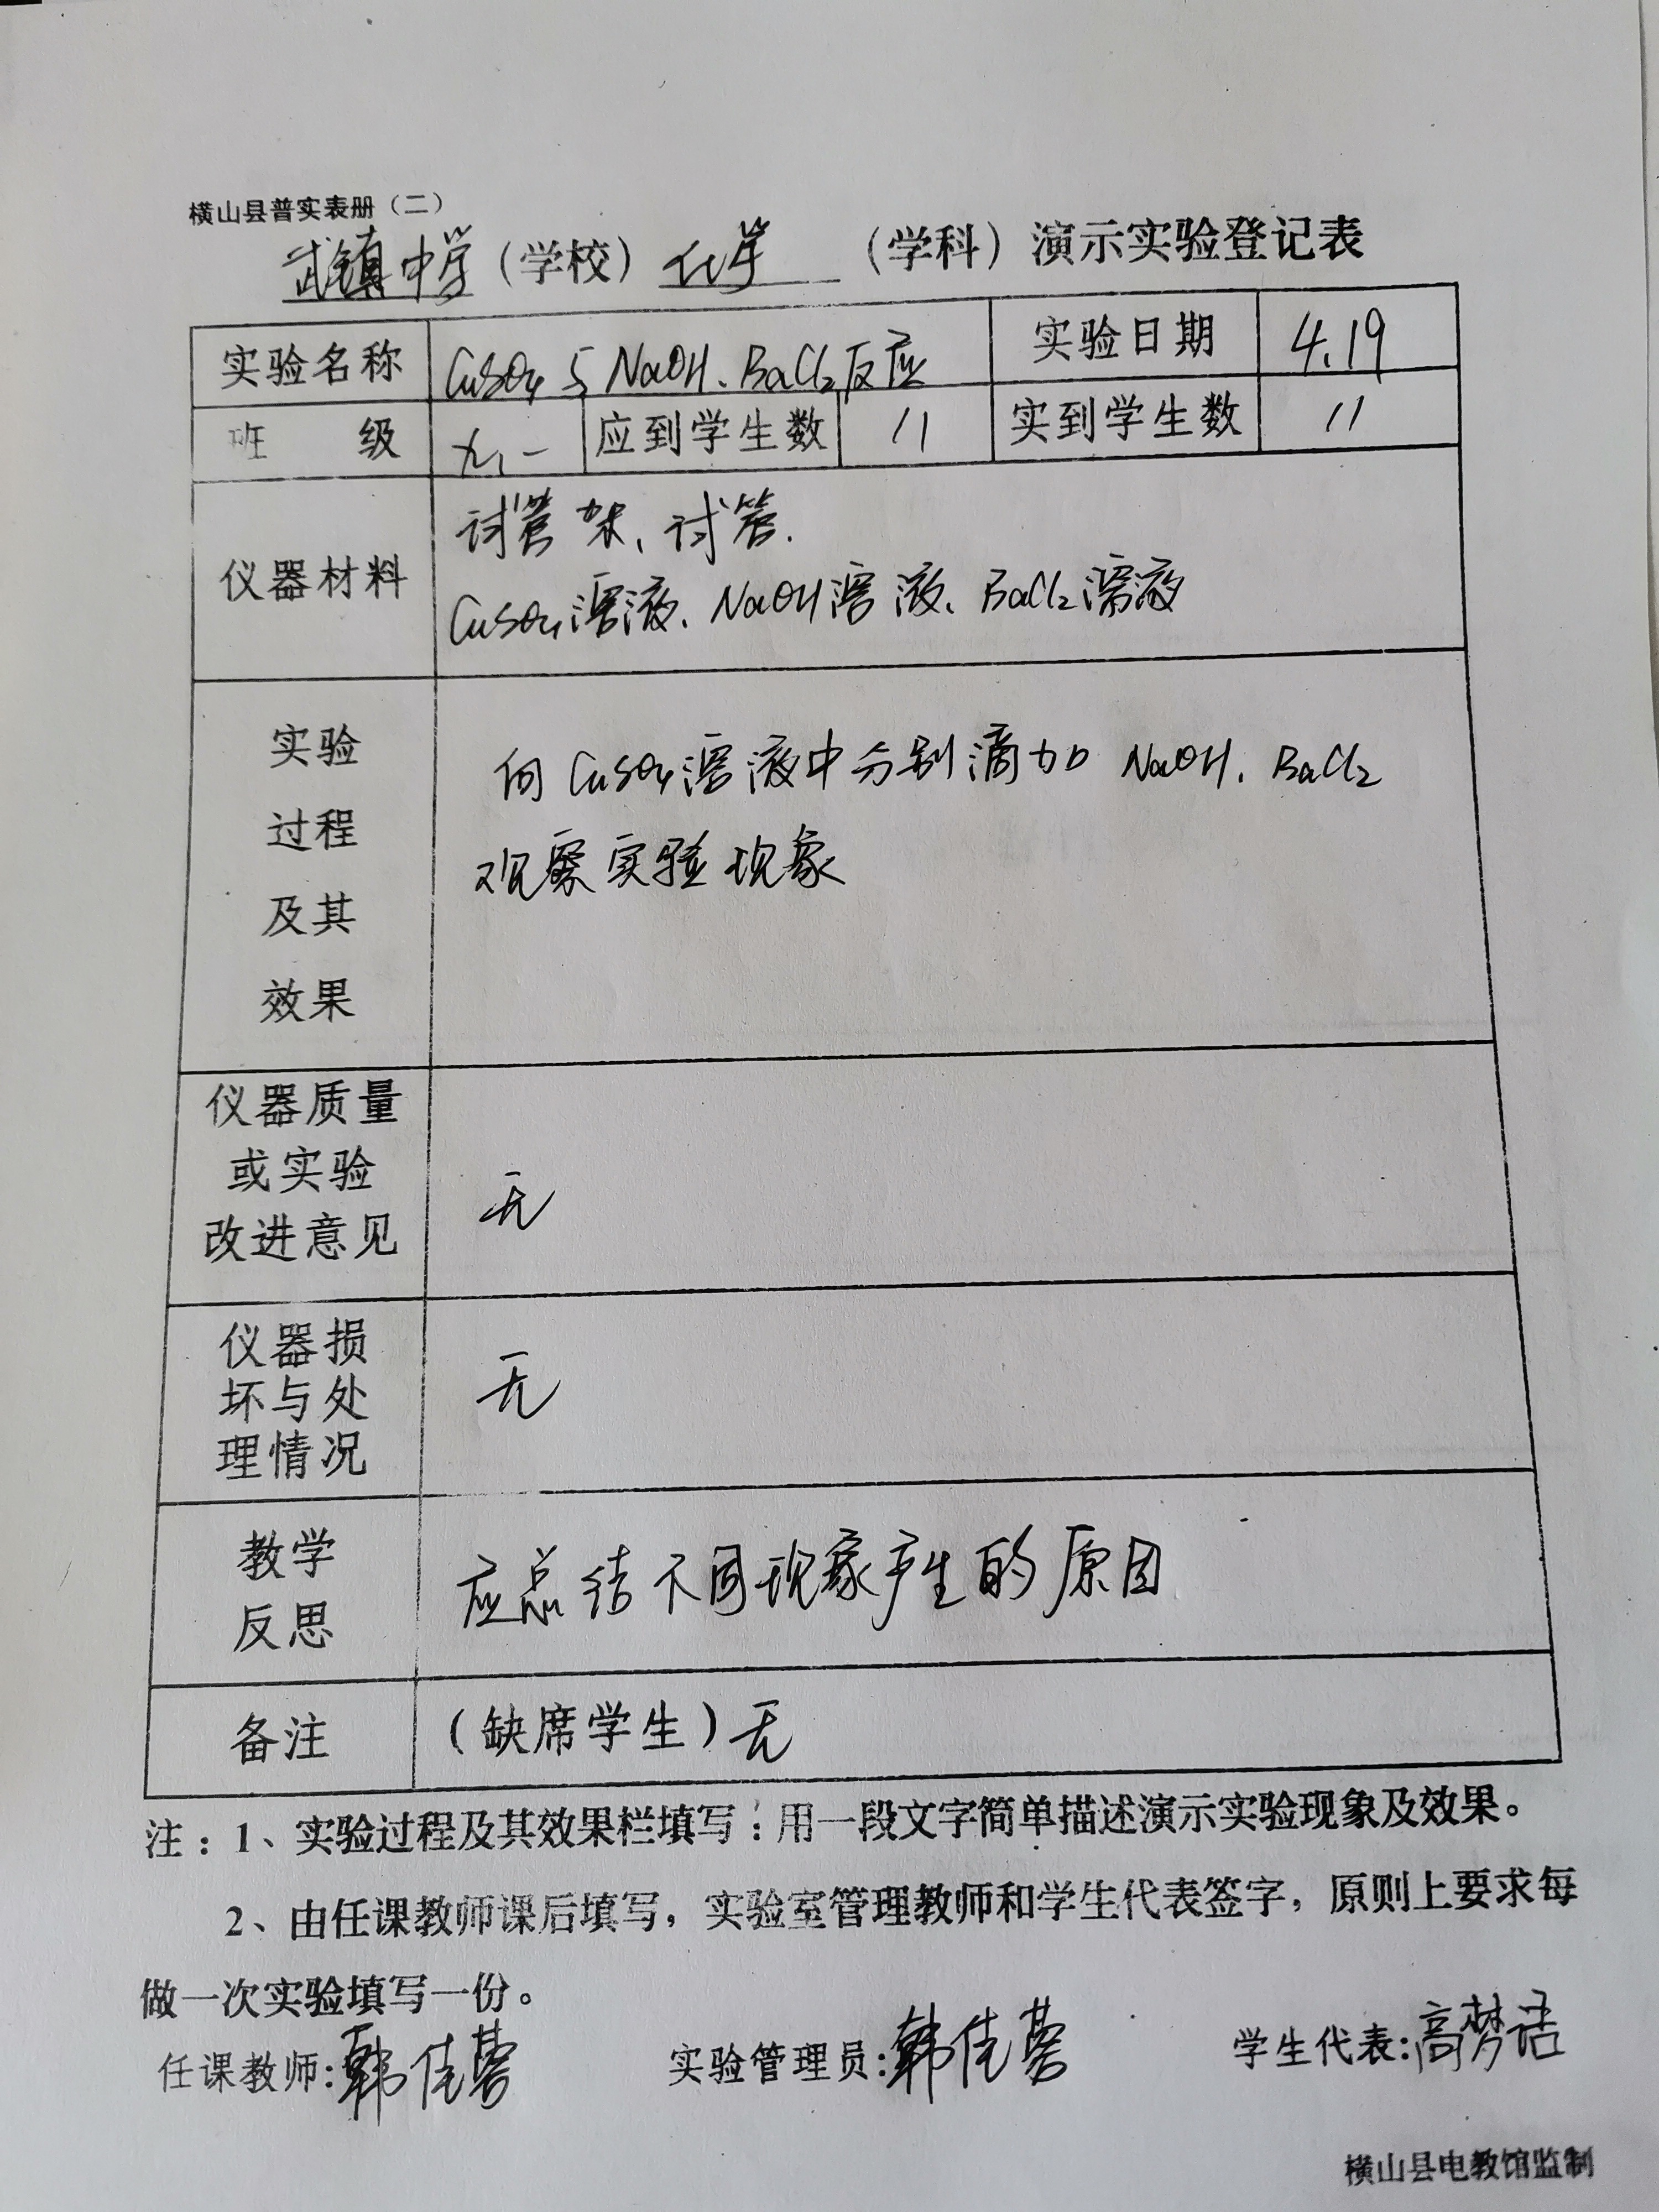 横山县普实表册（二）
武镇中学（学校）化学（学科）演示实验登记表
实验名称 CuSO4与NaOH、BaCl2反应 实验日期 4.19
班 级 九、一 应到学生数 11 实到学生数 11
试管架、试管.
仪器材料
CuSO4溶液、NaOH溶液、BaCl2溶液
实验
向CuSO4溶液中分别滴加 NaOH、BaCl2
过程
观察实验现象
及其
效果
仪器质量
或实验
改进意见
无
仪器损
坏与处
理情况
无
教学
反思
应总结不同现象产生的原因
备注 （缺席学生）无
注：1、实验过程及其效果栏填写：用一段文字简单描述演示实验现象及效果。
2、由任课教师课后填写，实验室管理教师和学生代表签字，原则上要求每
做一次实验填写一份。
任课教师:韩佳 实验管理员:韩佳 学生代表:高梦洁
横山县电教馆监制